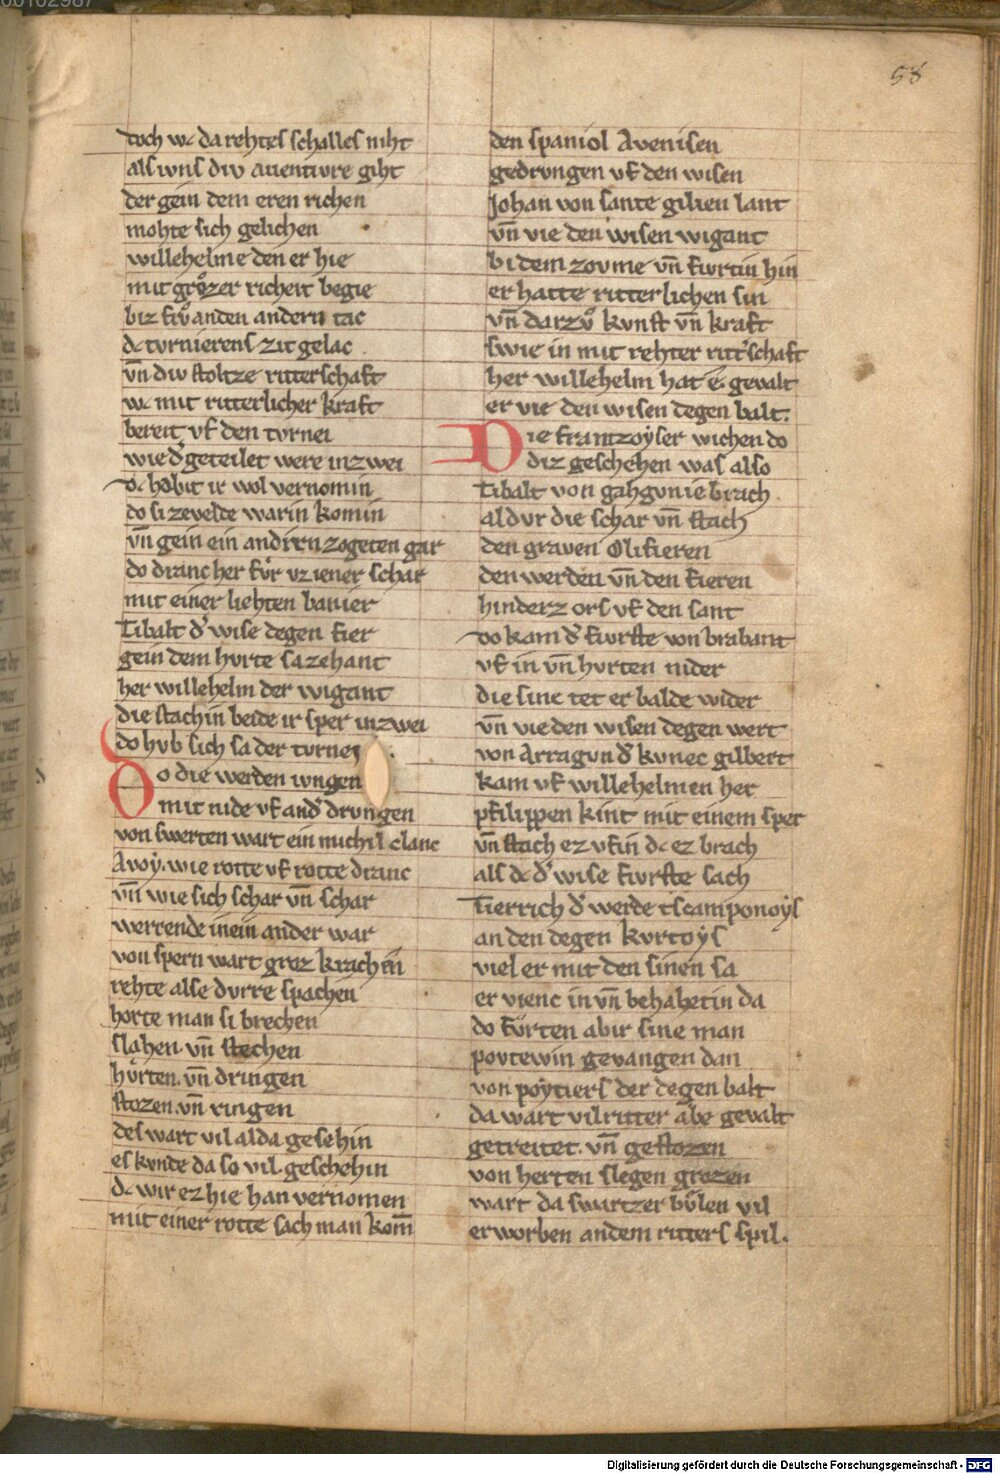 58
doch wc da rehtes schalles niht
als vns div auentivre giht
der gein dem eren richen
mohte sich gelichen
willehelme den er hie
mit grozer richeit begie
biz frv anden andern tac
dc tvrnierens zit gelac
vn̄ div stoltze ritterschaft
wc mit ritterlicher kraft
bereit vf den tvrnei
wie d͛ geteilet were inzwei
dc habit ir wol vernomin
do si zevelde warin komin
vn̄ gein ein andren zogeten gar
do dranc her fvr vz iener schar
mit einer liehten banier
Tibalt d͛ wise degen fier
gein dem hvrte sazehant
her willehelm der wigant
die stachin beide ir sper inzwei
do hvb sich sa der tvrnei
Do die werden ivngen
mit nide vf and͛ drvngen
von swerten wart ein michil clanc
Avoy. wie rotte vf rotte dranc
vn̄ wie sich schar vn̄ schar
werrende inein ander war
von spern wart groz krachen
rehte alse dvrre spachen
horte man si brechen
slahen. vn̄ stechen
hvrten. vn̄ dringen
stozen. vn̄ ringen
des wart vil alda gesehin
es kvnde da so vil geschehin
dc wir ez hie han vernomen
mit einer rotte sach man kom̄
den spaniol Avenisen
gedrvngen vf den wisen
Johan von sante gilien lant
vn̄ vie den wisen wigant
bi dem zovme vn̄ fvrtin hin
er hatte ritterlichen sin
vn̄ darzv kvnst vn̄ kraft
swie in mit rehter ritt͛schaft
her willehelm hat e. gevalt
er vie den wisen degen balt.
Die frantzoyser wichen do
diz geschehen was also
Tibalt von gahgvnie brach
al dvr die schar vn̄ stach
den graven Olifieren
den werden vn̄ den fieren
hinderz ors vf den sant
do kam d͛ fvrste von brabant
vf in vn̄ hvrten nider
die sinc tet er balde wider
vn̄ vie den wisen degen wert
von Arragvn d͛ kvnec gilbert
kam vf willehelmen her
pfilippen kint mit einem sper
vn̄ stach ez vf in dc ez brach
als dc d͛ wise fvrste sach
Tierrich d͛ werde tscamponoys
an den degen kvrtoys
viel er mit den sinen sa
er vienc in vn̄ behabetin da
do fvrten abir sine man
poytewin gevangen dan
von poytiers der degen balt
da wart vil ritter abe gevalt
getreitet. vn̄ gestozen
von herten slegen grozen
wart da swartzer bvlen vil
erworben andem ritters spil.
Digitalisierung gefördert durch die Deutsche Forschungsgemeinschaft - DFG